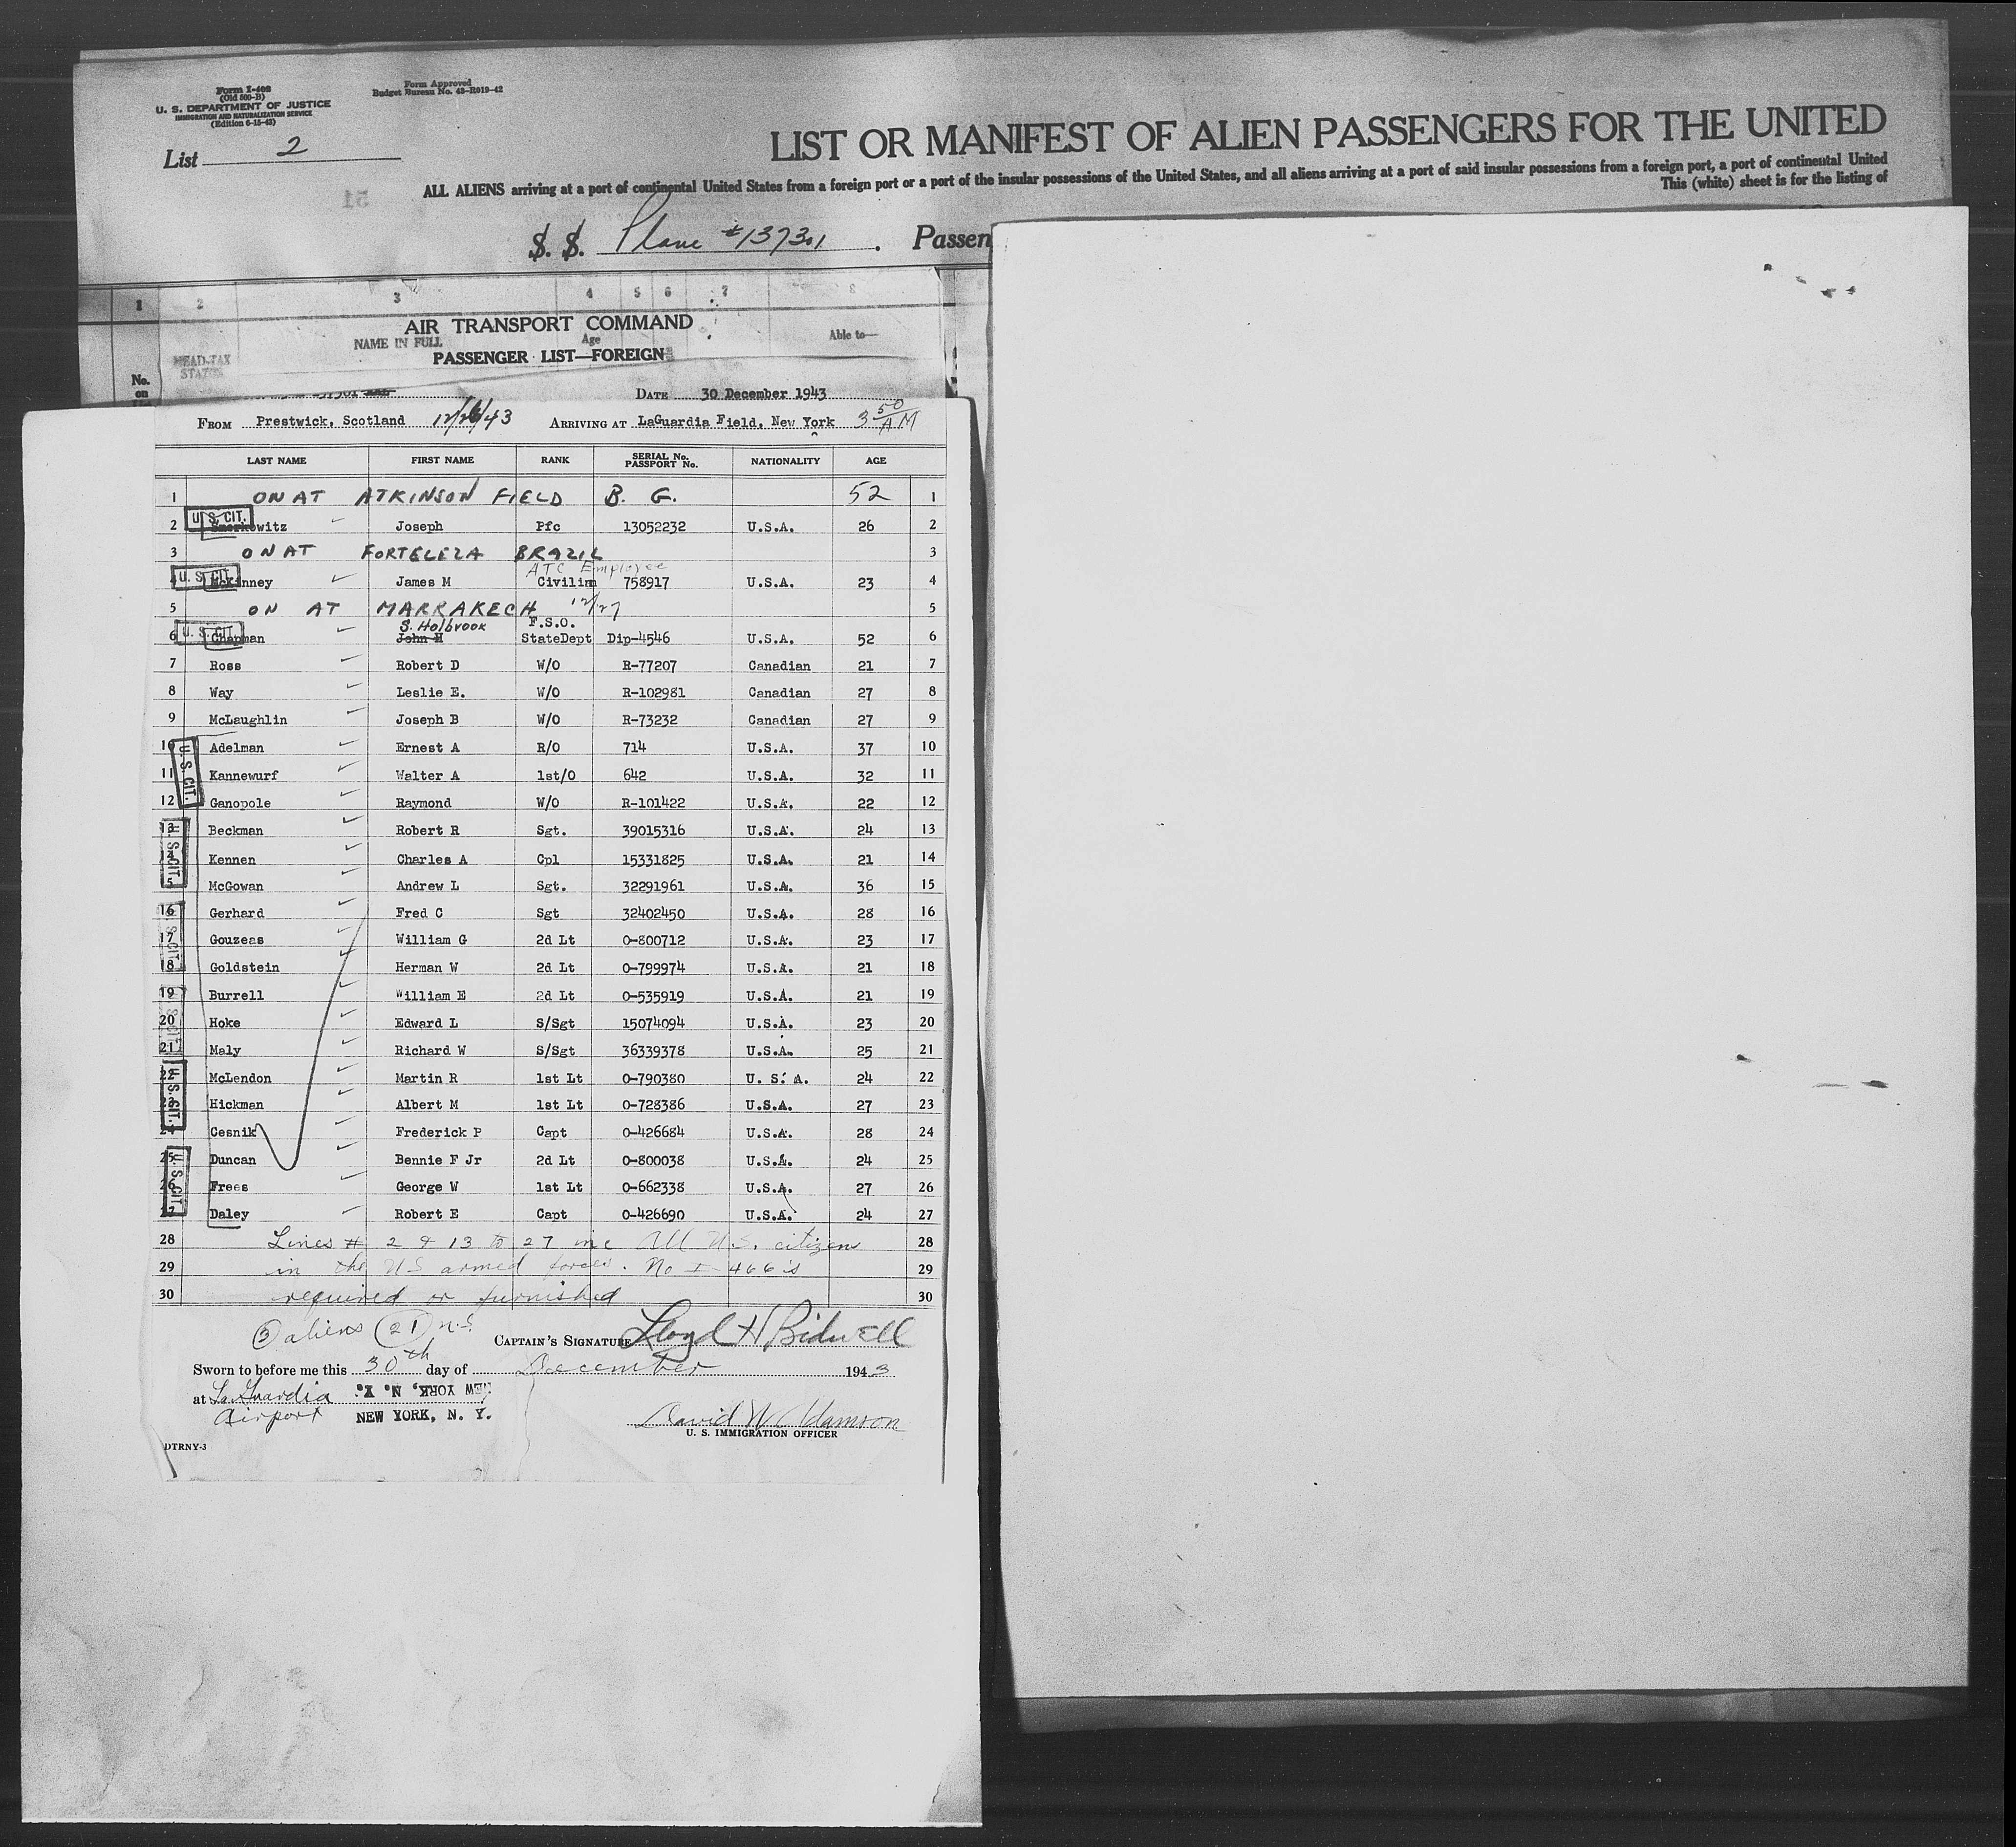 Form I-402
(Old 500-B)
U. S. DEPARTMENT OF JUSTICE
IMMIGRATION AND NATURALIZATION SERVICE
(Edition 6-15-42)
Form Approved
Budget Bureau No. 43-R019-42
List 2
LIST OR MANIFEST OF ALIEN PASSENGERS FOR THE UNITED
ALL ALIENS arriving at a port of continental United States from a foreign port or a port of the insular possessions of the United States, and all aliens arriving at a port of said insular possessions from a foreign port, a port of continental United
This (white) sheet is for the listing of
51
S. S. Plane #137301 . Passen
1 2 3 4 5 6 7 8
AIR TRANSPORT COMMAND
NAME IN FULL Age Able to—
PASSENGER LIST—FOREIGN
HEAD-TAX
No.
on
DATE 30 December 1943
FROM Prestwick, Scotland 12/26/43 ARRIVING AT LaGuardia Field, New York 3 50/AM
LAST NAME FIRST NAME RANK SERIAL No. PASSPORT No. NATIONALITY AGE
1 ON AT ATKINSON FIELD B. G. 52 1
2 U. S. CIT. Joseph Pfc 13052232 U.S.A. 26 2
3 ON AT FORTELEZA BRAZIL 3
ATC Employee
4 U. S. CIT. McKinney James M Civilian 758917 U.S.A. 23 4
5 ON AT MARRAKECH 12/27 5
S. Holbrook F.S.O.
6 U. S. CIT. Chapman John H StateDept Dip-4546 U.S.A. 52 6
7 Ross Robert D W/O R-77207 Canadian 21 7
8 Way Leslie E. W/O R-102981 Canadian 27 8
9 McLaughlin Joseph B W/O R-73232 Canadian 27 9
10 Adelman Ernest A R/O 714 U.S.A. 37 10
11 U. S. CIT. Kannewurf Walter A 1st/O 642 U.S.A. 32 11
12 Ganopole Raymond W/O R-101422 U.S.A. 22 12
13 Beckman Robert R Sgt. 39015316 U.S.A. 24 13
14 U. S. CIT. Kennen Charles A Cpl 15331825 U.S.A. 21 14
15 McGowan Andrew L Sgt. 32291961 U.S.A. 36 15
16 Gerhard Fred C Sgt 32402450 U.S.A. 28 16
17 U. S. CIT. Gouzeas William G 2d Lt O-800712 U.S.A. 23 17
18 Goldstein Herman W 2d Lt O-799974 U.S.A. 21 18
19 Burrell William E 2d Lt O-535919 U.S.A. 21 19
20 U. S. CIT. Hoke Edward L S/Sgt 15074094 U.S.A. 23 20
21 Maly Richard W S/Sgt 36339378 U.S.A. 25 21
22 McLendon Martin R 1st Lt O-790380 U. S. A. 24 22
23 U. S. CIT. Hickman Albert M 1st Lt O-728386 U.S.A. 27 23
24 Cesnik Frederick P Capt O-426684 U.S.A. 28 24
25 Duncan Bennie F Jr 2d Lt O-800038 U.S.A. 24 25
26 U. S. CIT. Frees George W 1st Lt O-662338 U.S.A. 27 26
27 Daley Robert E Capt O-426690 U.S.A. 24 27
28 Lines # 2 & 13 to 27 inc All U.S. citizens 28
29 in the US armed forces. No I-466's 29
30 required or furnished 30
③ aliens (21) U.S.
CAPTAIN'S SIGNATURE Lloyd H Bidwell
Sworn to before me this 30th day of December 1943
at LaGuardia NEW YORK, N. Y.
Airport NEW YORK, N. Y. David W Adamson
U. S. IMMIGRATION OFFICER
DTRNY-3